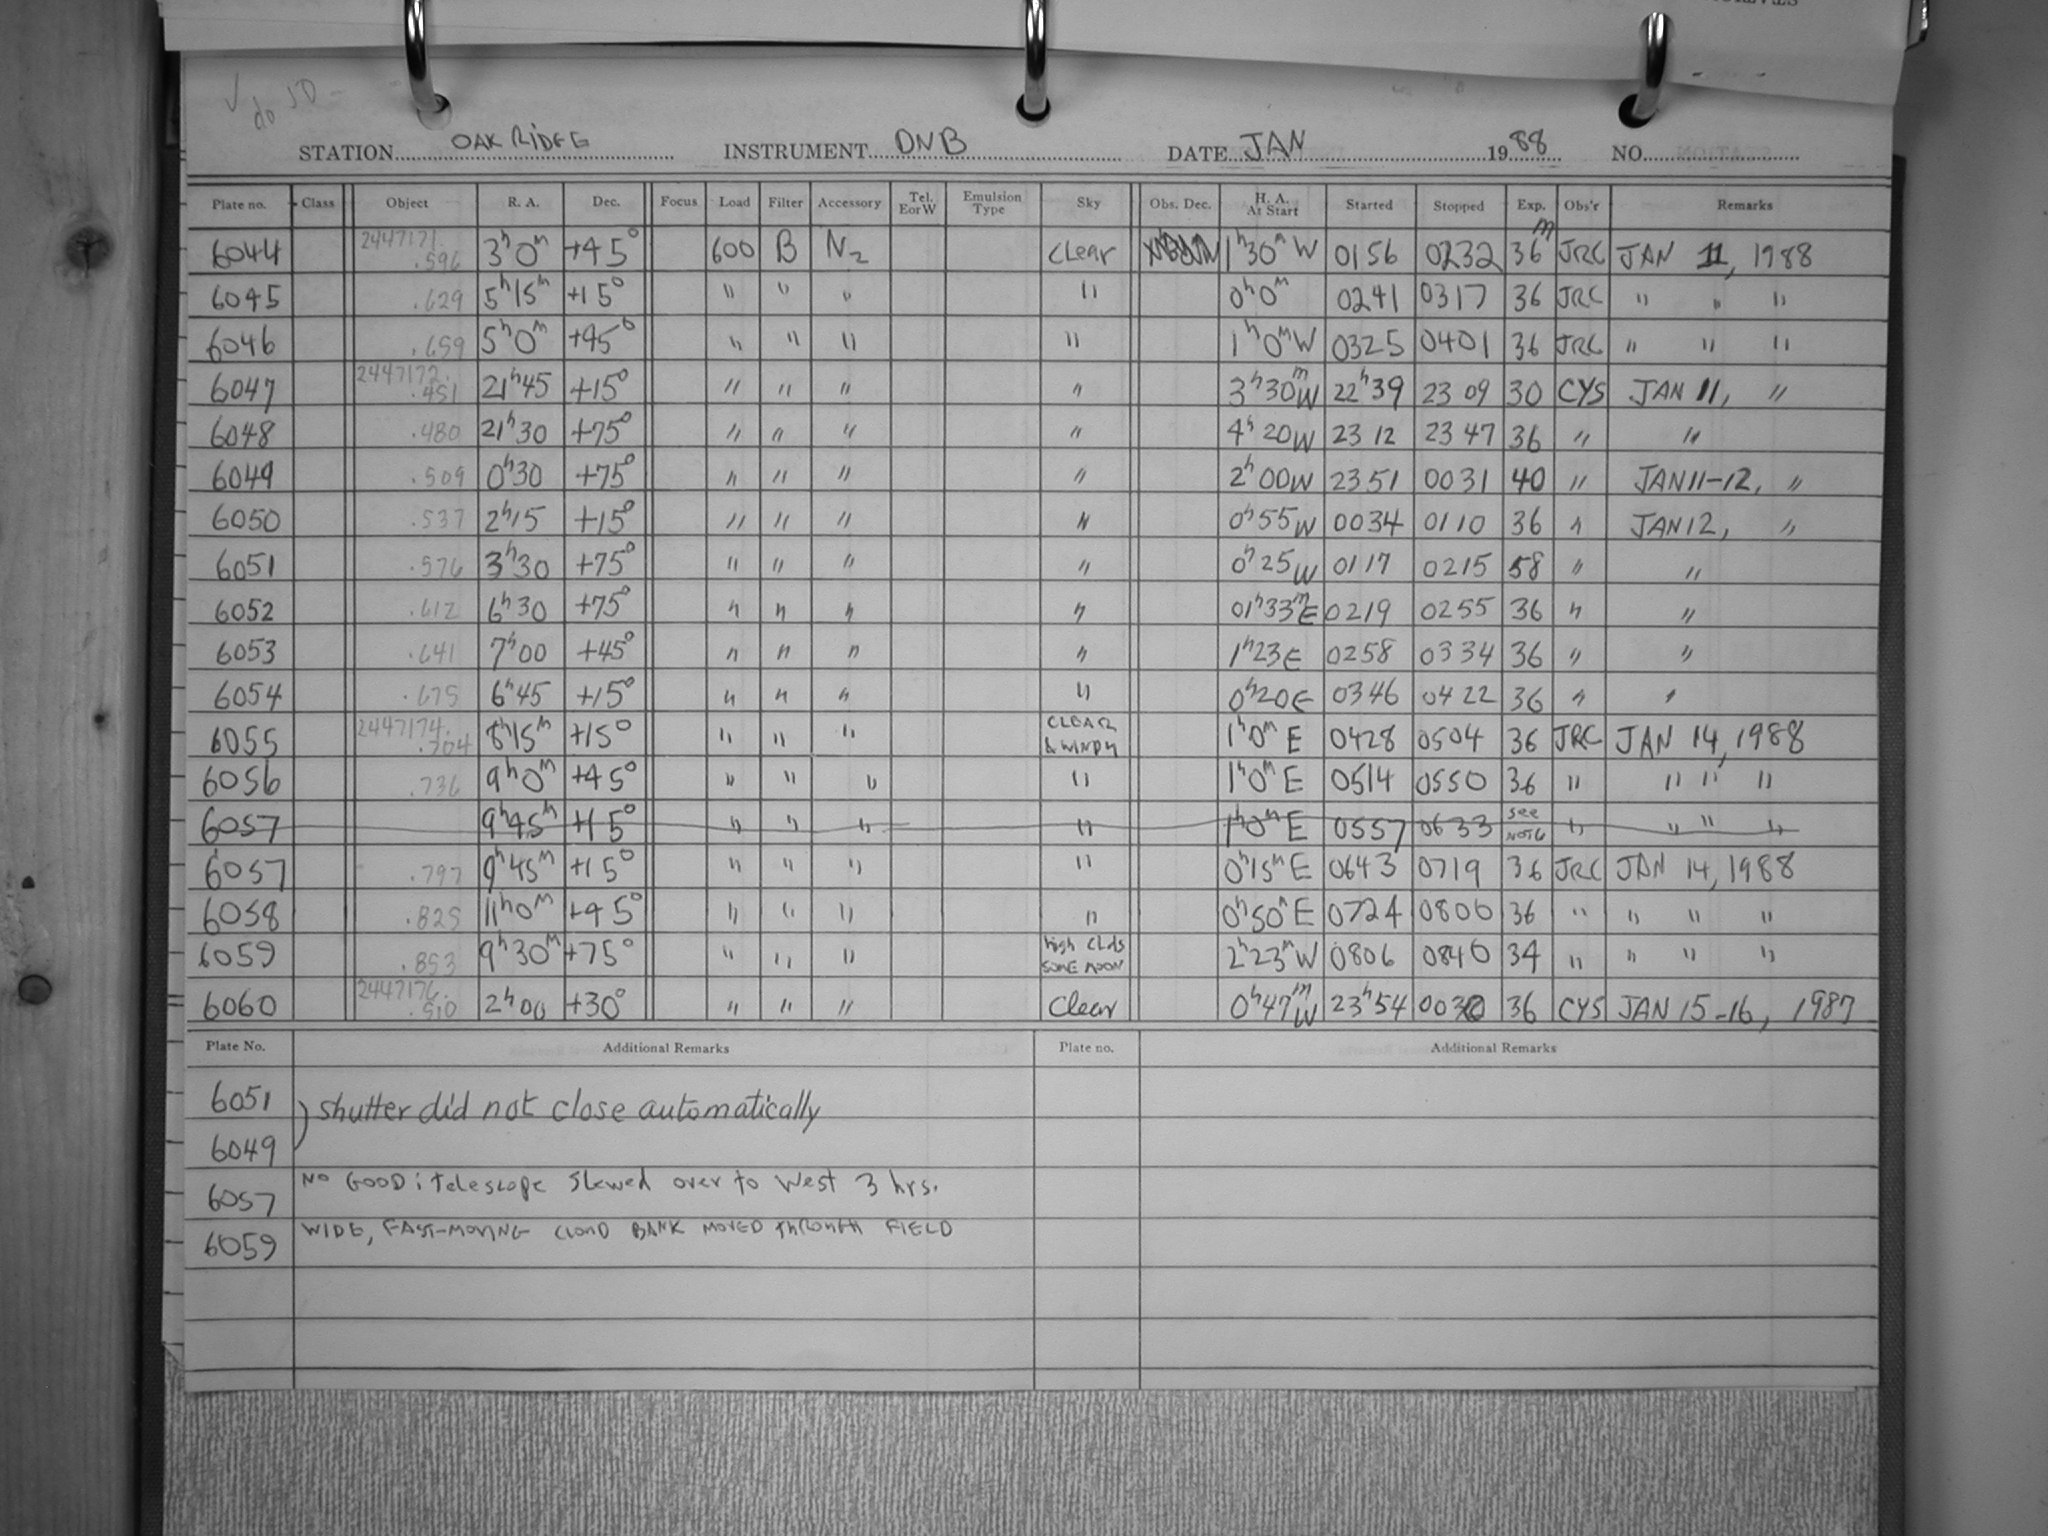 √ do JD
STATION OAK RIDGE INSTRUMENT DNB DATE JAN 1988 NO.
Plate no. Class Object R. A. Dec. Focus Load Filter Accessory Tel. E or W Emulsion Type Sky Obs. Dec. H. A. At Start Started Stopped Exp. Obs'r Remarks
6044 2447171.596 3h 0m +45° 600 B N2 Clear 1h30m W 0156 0232 36m JRC JAN 11, 1988
6045 .629 5h15m +15° " " " " 0h0m 0241 0317 36 JRC " " "
6046 .659 5h0m +45° " " " " 1h0m W 0325 0401 36 JRC " " "
6047 2447172.451 21h45 +15° " " " " 3h30m W 22h39 23 09 30 CYS JAN 11, "
6048 .480 21h30 +75° " " " " 4h20 W 23 12 23 47 36 " "
6049 .509 0h30 +75° " " " " 2h00 W 23 51 0031 40 " JAN 11-12, "
6050 .537 2h15 +15° " " " " 0h55 W 0034 0110 36 " JAN 12, "
6051 .576 3h30 +75° " " " " 0h25 W 0117 0215 58 " "
6052 .612 6h30 +75° " " " " 01h33m E 0219 0255 36 " "
6053 .641 7h00 +45° " " " " 1h23 E 0258 0334 36 " "
6054 .675 6h45 +15° " " " " 0h20 E 0346 0422 36 " "
6055 2447174.704 8h15m +15° " " " CLEAR & WINDY 1h0m E 0428 0504 36 JRC JAN 14, 1988
6056 .736 9h0m +45° " " " " 1h0m E 0514 0550 36 " " " "
6057 9h45m +15° " " " " 1h0m E 0557 0633 see NOTE " " " "
6057 .797 9h45m +15° " " " " 0h15m E 0643 0719 36 JRC JAN 14, 1988
6058 .825 11h0m +45° " " " " 0h50m E 0724 0800 36 " " " "
6059 .853 9h30m +75° " " " high clds SOME MOON 2h23m W 0806 0840 34 " " " "
6060 2447176.510 2h00 +30° " " " Clear 0h47m W 23h54 0030 36 CYS JAN 15-16, 1987
Plate No. Additional Remarks Plate no. Additional Remarks
6051
) shutter did not close automatically
6049
6057 NO GOOD: telescope slewed over to West 3 hrs.
6059 WIDE, FAST-MOVING CLOUD BANK MOVED THROUGH FIELD